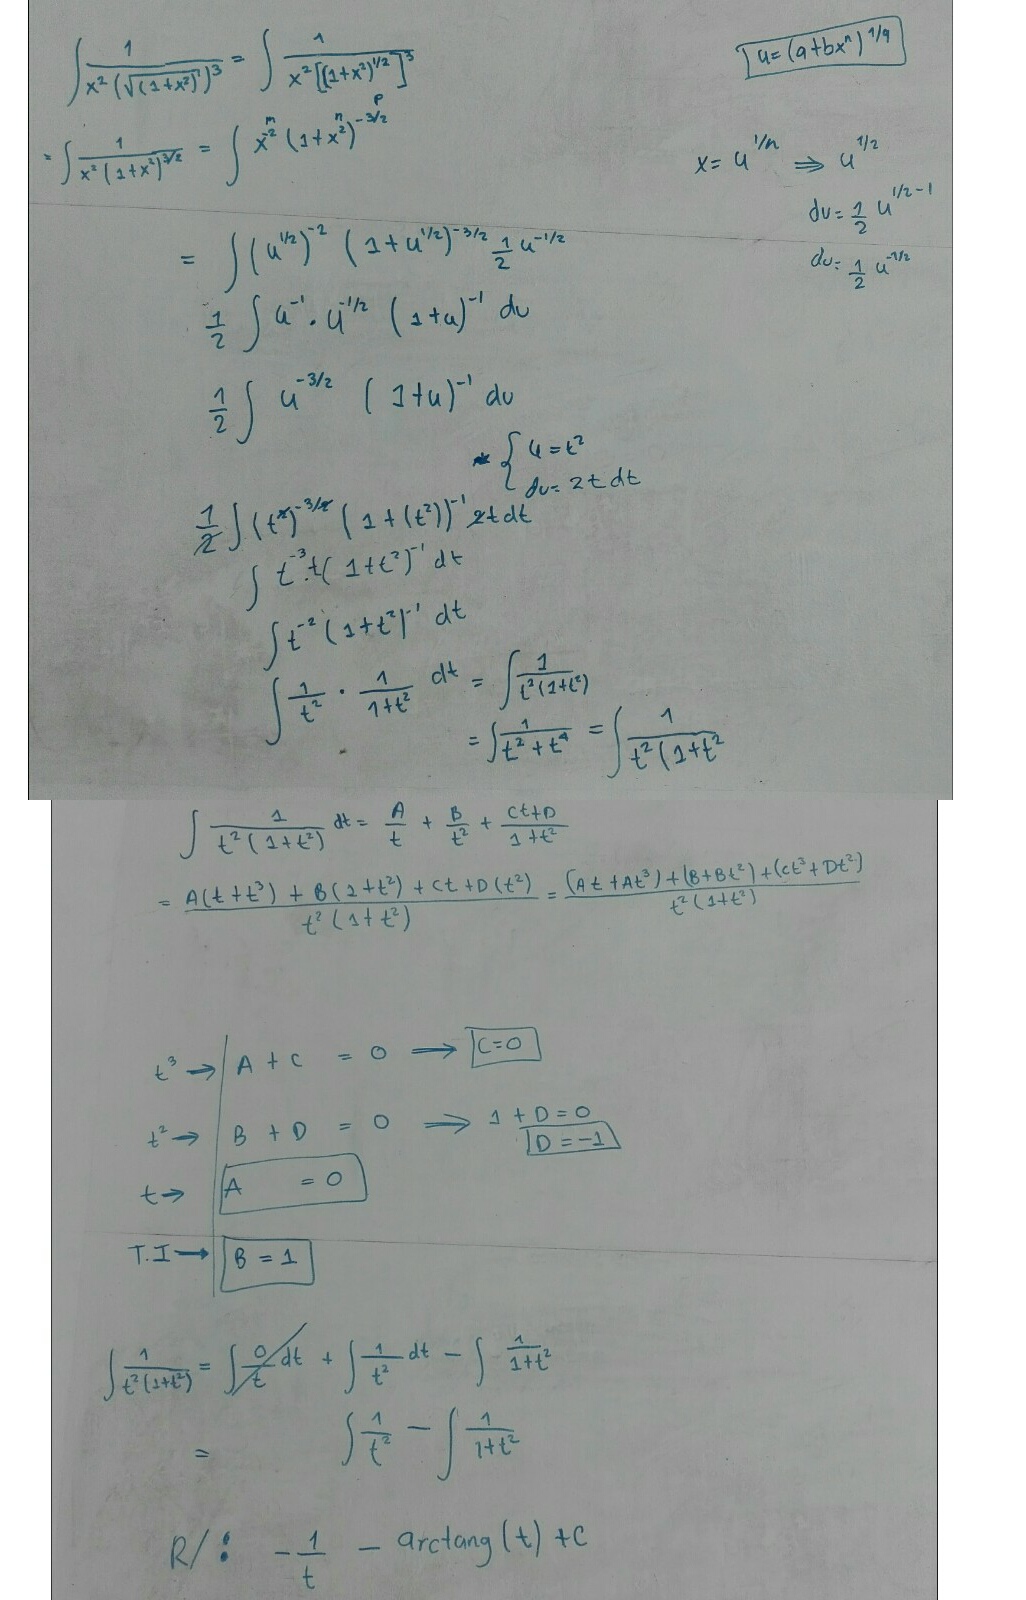 ∫ 1/(x² (√(1+x²))³) = ∫ 1/(x² [(1+x²)^1/2]³)
u = (a+bxⁿ)^1/q
= ∫ 1/(x² (1+x²)^3/2) = ∫ x^-2 (1+x²)^-3/2
m n p
x = u^1/n ⇒ u^1/2
du = 1/2 u^1/2-1
du: 1/2 u^-1/2
= ∫ (u^1/2)^-2 (1+u^1/2)^-3/2 1/2 u^-1/2
1/2 ∫ u^-1 · u^-1/2 (1+u)^-1 du
1/2 ∫ u^-3/2 (1+u)^-1 du
* { u = t²
du = 2t dt
1/2 ∫ (t²)^-3/2 (1+(t²))^-1 2t dt
∫ t^-3 · t (1+t²)^-1 dt
∫ t^-2 (1+t²)^-1 dt
∫ 1/t² · 1/(1+t²) dt = ∫ 1/(t²(1+t²))
= ∫ 1/(t²+t⁴) = ∫ 1/(t²(1+t²
∫ 1/(t²(1+t²)) dt = A/t + B/t² + (Ct+D)/(1+t²)
= (A(t+t³) + B(1+t²) + Ct+D(t²))/(t²(1+t²)) = ((At+At³)+(B+Bt²)+(Ct³+Dt²))/(t²(1+t²))
t³ → A + C = 0 → C=0
t² → B + D = 0 ⇒ 1+D=0
D=-1
t → A = 0
T.I → B = 1
∫ 1/(t²(1+t²)) = ∫ 0/t dt + ∫ 1/t² dt - ∫ 1/(1+t²)
= ∫ 1/t² - ∫ 1/(1+t²)
R/: -1/t - arctang(t) + C